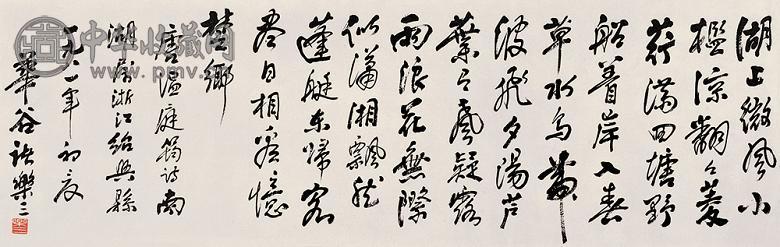 湖上微風小
檻涼翻々菱
荇滿回塘野
船着岸入春
草水鳥帶
波飛夕陽芦
葉有風疑霧
雨浪花無際
似瀟湘飄然
蓬艇東歸客
尽日相看憶
楚鄉
唐温庭筠詩南
湖屬浙江紹興縣
一九八一年初夏
華谷諸樂三
中华收藏网